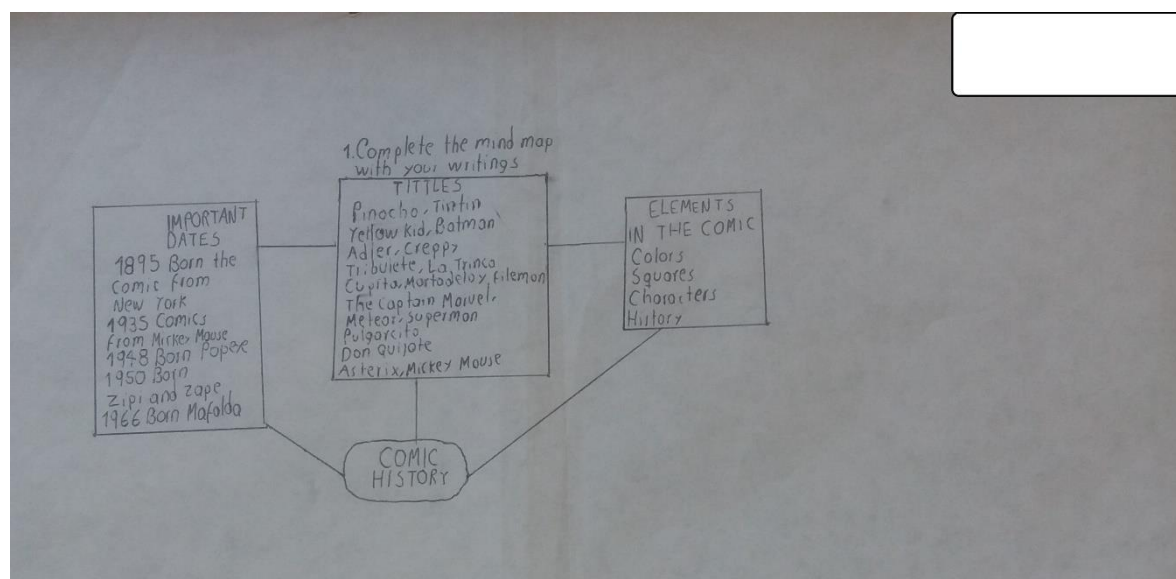 1. Complete the mind map
with your writings
IMPORTANT
DATES
1895 Born the
comic from
New York
1935 Comics
from Mickey Mouse
1948 Born Popeye
1950 Born
Zipi and Zape
1966 Born Mafalda
TITTLES
Pinocho, Tintin
Yellow Kid, Batman
Adler, Creppy
Tribulete, La Trinca
Cupito, Mortadelo y Filemon
The Captain Marvel,
Meteor, Superman
Pulgarcito
Don Quijote
Asterix, Mickey Mouse
ELEMENTS
IN THE COMIC
Colors
Squares
Characters
History
COMIC
HISTORY